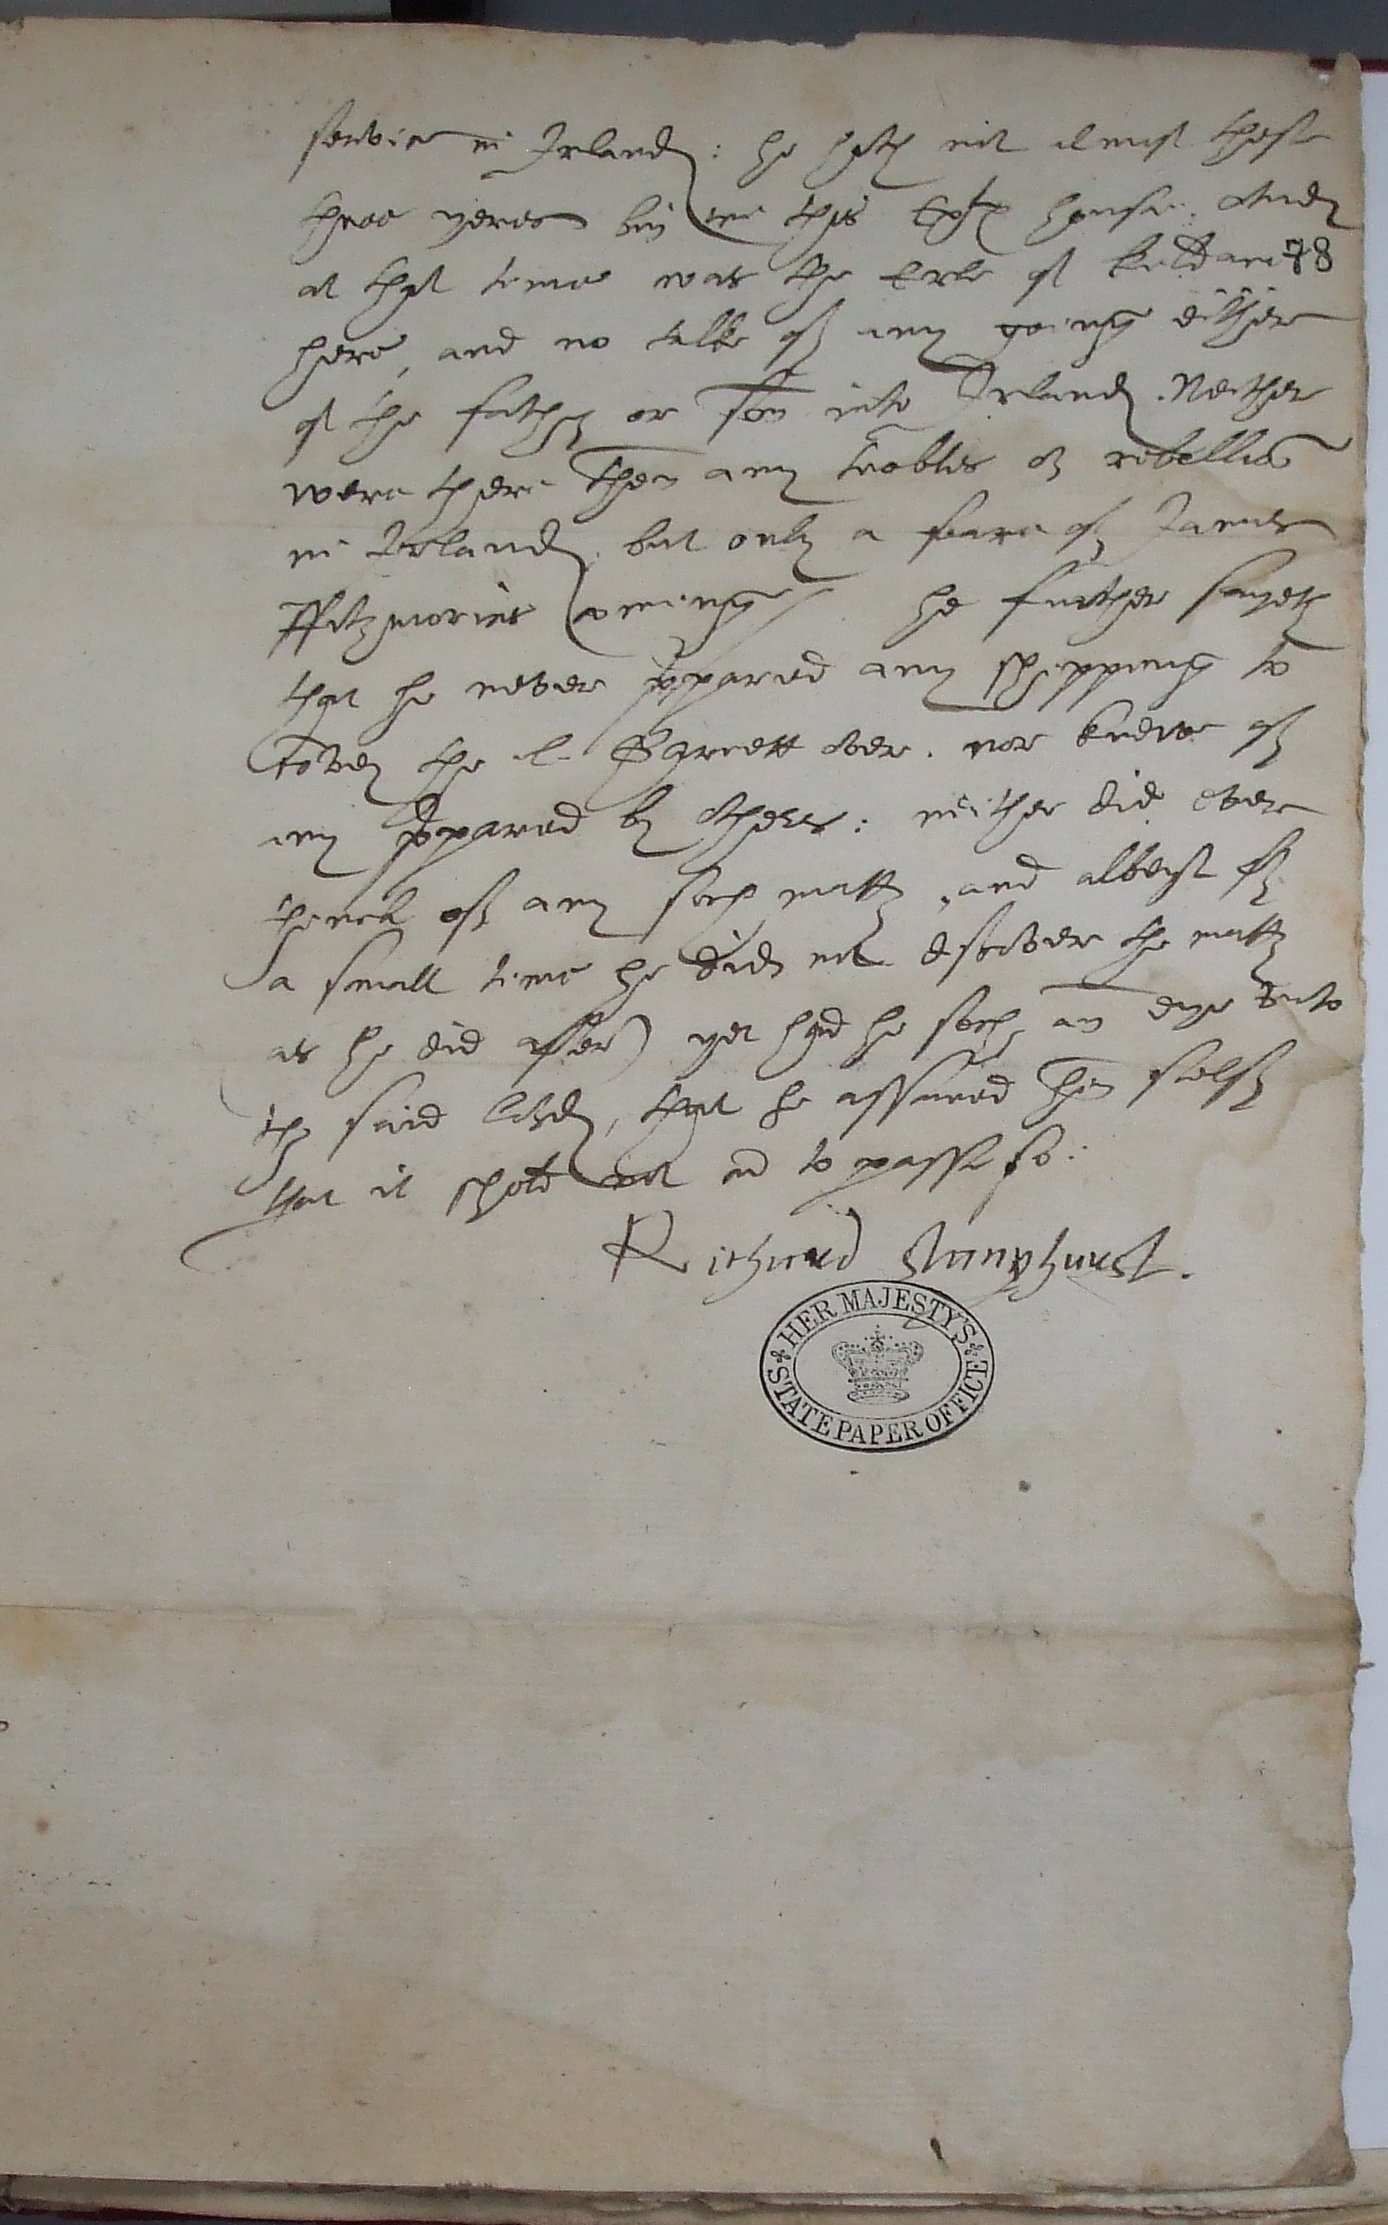 service in Irland: he hath not almost these
three yeres bin in this house. And
at that time was the Erle of Kildare 78
here, and no talke of any going either
of the father or son into Irland. Neither
were there then any trobles or rebellio
in Irland, but only a feare of James
ffitzmories coming / he further sayeth
that he never ppared any shipping to
convey the l. Garrett over. nor knewe of
any ppared by others: neither did ever
think of any soch matter, and albeyt for
a small time he did not discover the matter
as he did after) yet had he soch an eye unto
the said lord, that he assured him self
that it shold not come to passe so:
Richard Stanyhurst.
HER MAJESTY'S
STATE PAPER OFFICE